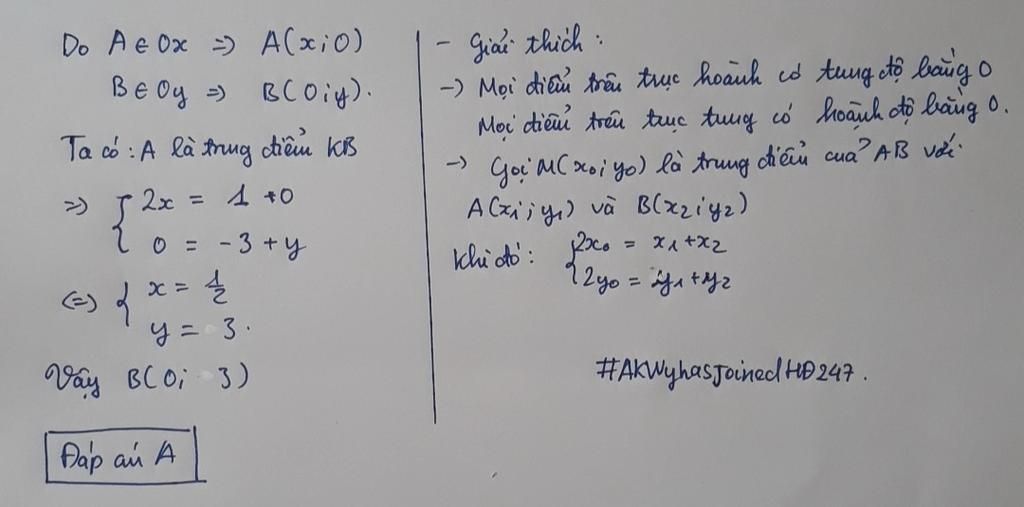 Do A ∈ Ox => A(x;0)
B ∈ Oy => B(0;y).
Ta có: A là trung điểm KB
=> { 2x = 1 + 0
0 = -3 + y
<=> { x = 1/2
y = 3.
Vậy B(0; 3)
Đáp án A
- Giải thích:
-> Mọi điểm trên trục hoành có tung độ bằng 0
Mọi điểm trên trục tung có hoành độ bằng 0.
-> Gọi M(x₀; y₀) là trung điểm của AB với
A(x₁; y₁) và B(x₂; y₂)
Khi đó: { 2x₀ = x₁ + x₂
2y₀ = y₁ + y₂
#AKWyhasJoinedHĐ247.